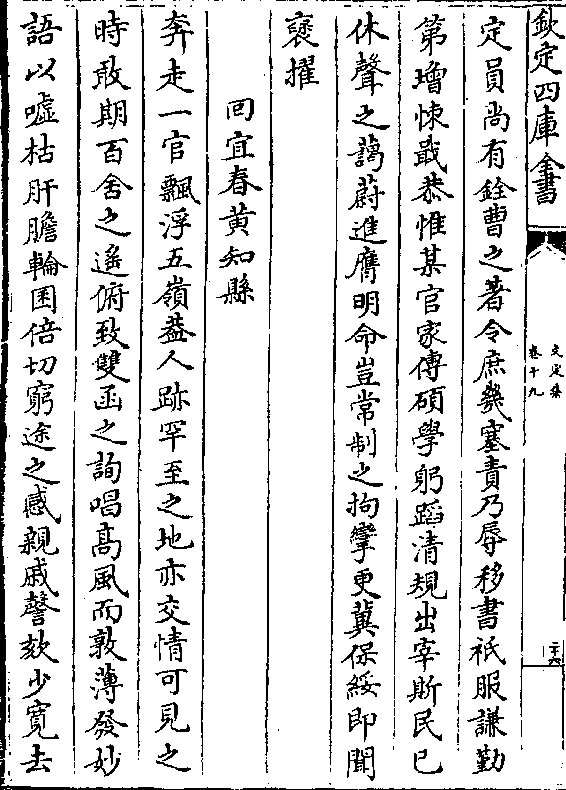 欽定四庫全書
文定集
卷十九
二十六
定員尚有銓曹之著令庶幾塞責乃辱移書祇服謙勤
第增悚戢恭惟某官家傳碩學躬蹈清規出宰斯民已
休聲之藹蔚進膺明命豈常制之拘攣更冀保綏即聞
褒擢
回宜春黄知縣
奔走一官飄浮五嶺葢人跡罕至之地亦交情可見之
時敢期百舍之遙俯致雙函之詢唱高風而敦薄發妙
語以噓枯肝膽輪囷倍切窮途之感親戚謦欬少寛去